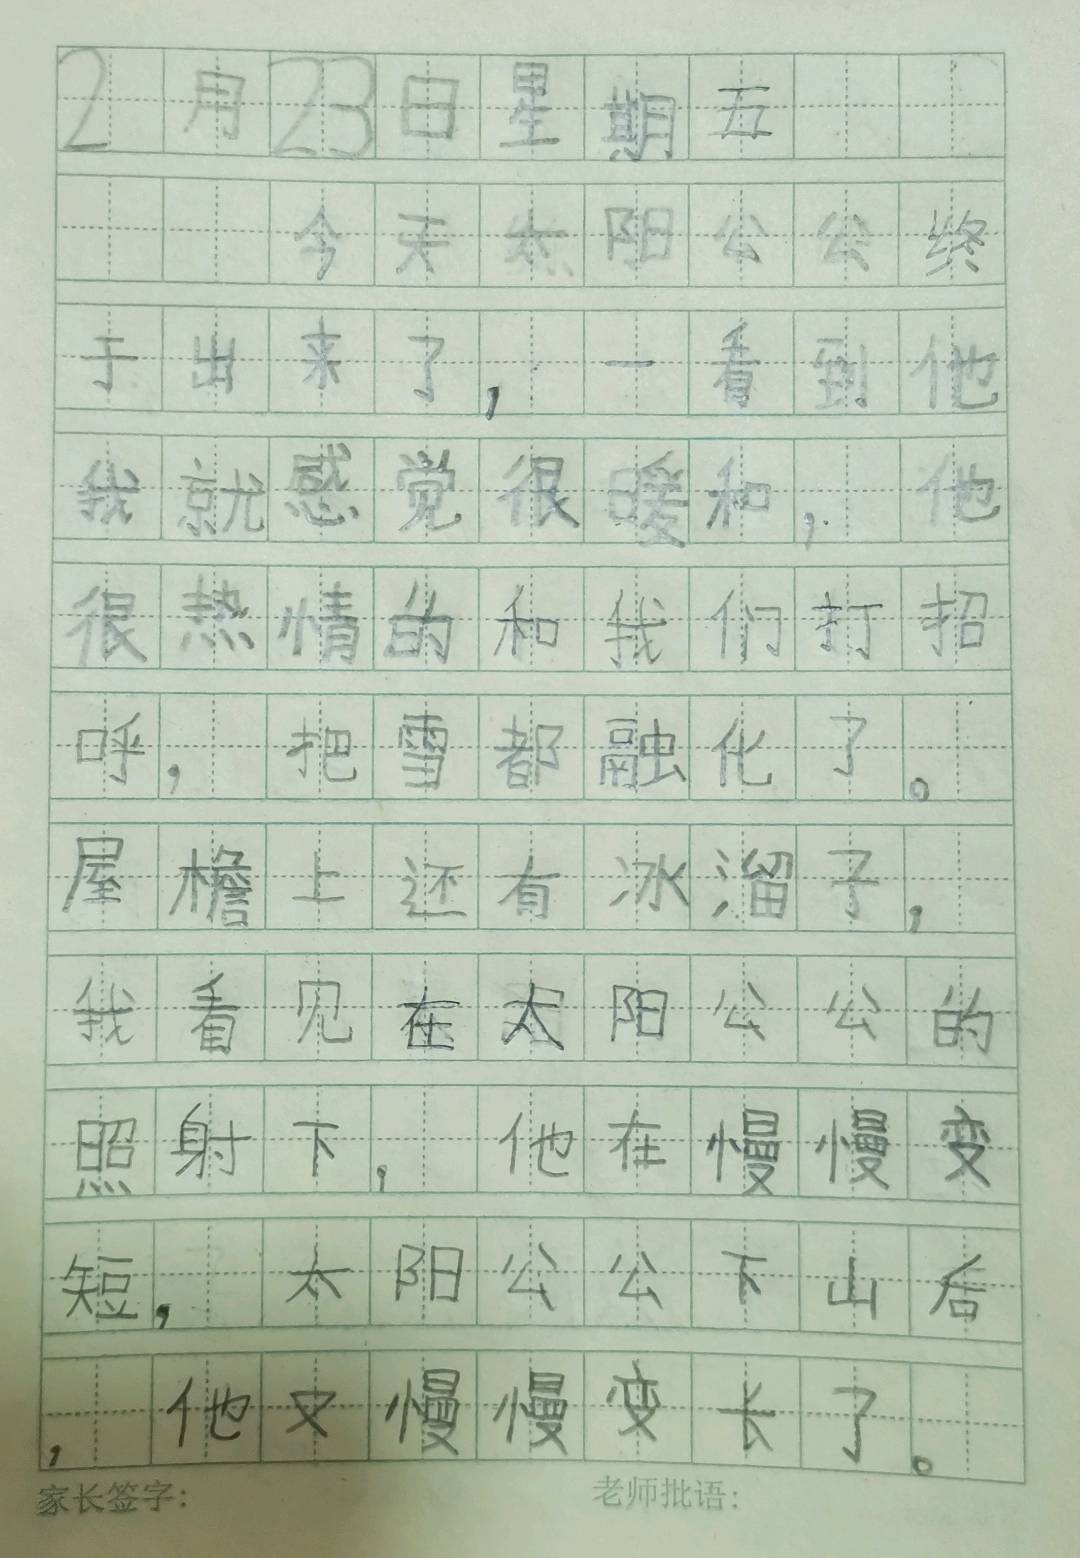 2月23日星期五
今天太阳公公终
于出来了，一看到他
我就感觉很暖和，他
很热情的和我们打招
呼，把雪都融化了。
屋檐上还有冰溜子，
我看见在太阳公公的
照射下，他在慢慢变
短，太阳公公下山后
，他又慢慢变长了。
家长签字： 老师批语：